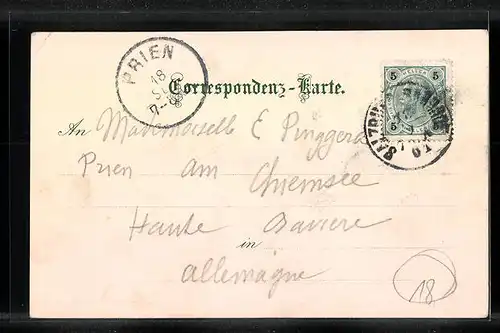 PRIEN
18
Correspondenz-Karte.
5 5
5 5
SALZBURG
An Mademoiselle E Pinggera
Prien am Chiemsee
Haute Baviere
in
Allemagne
18